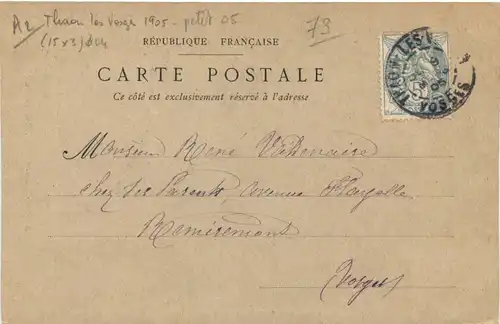 A2 Thaon les Vosges 1905 - petit 05
(15 x 3)
79
RÉPUBLIQUE FRANÇAISE
CARTE POSTALE
Ce côté est exclusivement réservé à l'adresse
THAON-LES-V
VOSGES
5
Monsieur René
chez ses Parents, avenue
Remiremont
Vosges